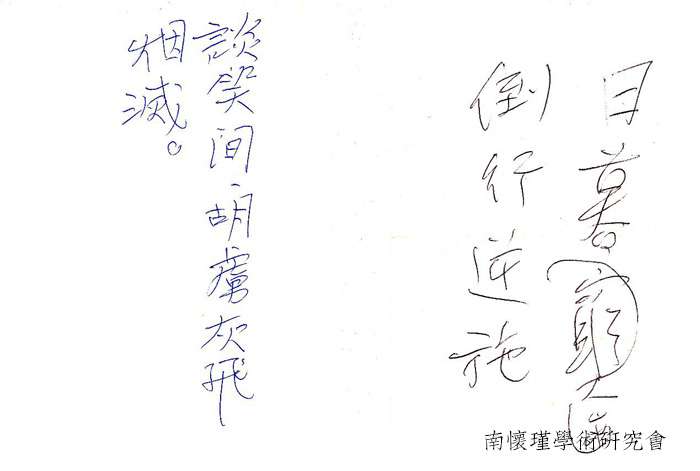 日暮
倒行逆施
談笑間胡虜灰飛
烟滅。
南懷瑾學術研究會